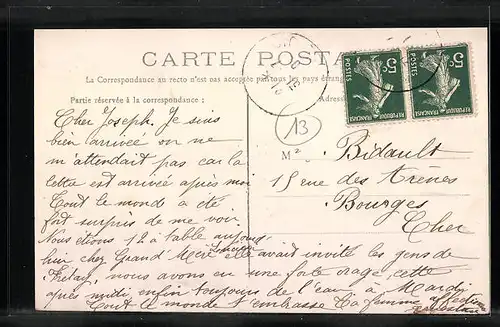 CARTE POSTA
La Correspondance au recto n'est pas acceptée par tous les pays étrangers
Partie réservée à la correspondance :
Adresse
5c POSTES RÉPUBLIQUE FRANÇAISE
5c POSTES RÉPUBLIQUE FRANÇAISE
13
Cher Joseph. Je suis
bien arrivée on ne
m'attendait pas car la
lettre est arrivée après moi
Tout le monde a été
fort surpris de me voir
Nous étions 12 à table aujourd
hui chez Grand Mère elle avait invité les gens de
nous avons eu une forte orage cette
après midi enfin toujours de l'eau à Mardi
Tout le monde t'embrasse Ta femme affection
M² Bidault
15 rue des Arènes
Bourges
Cher